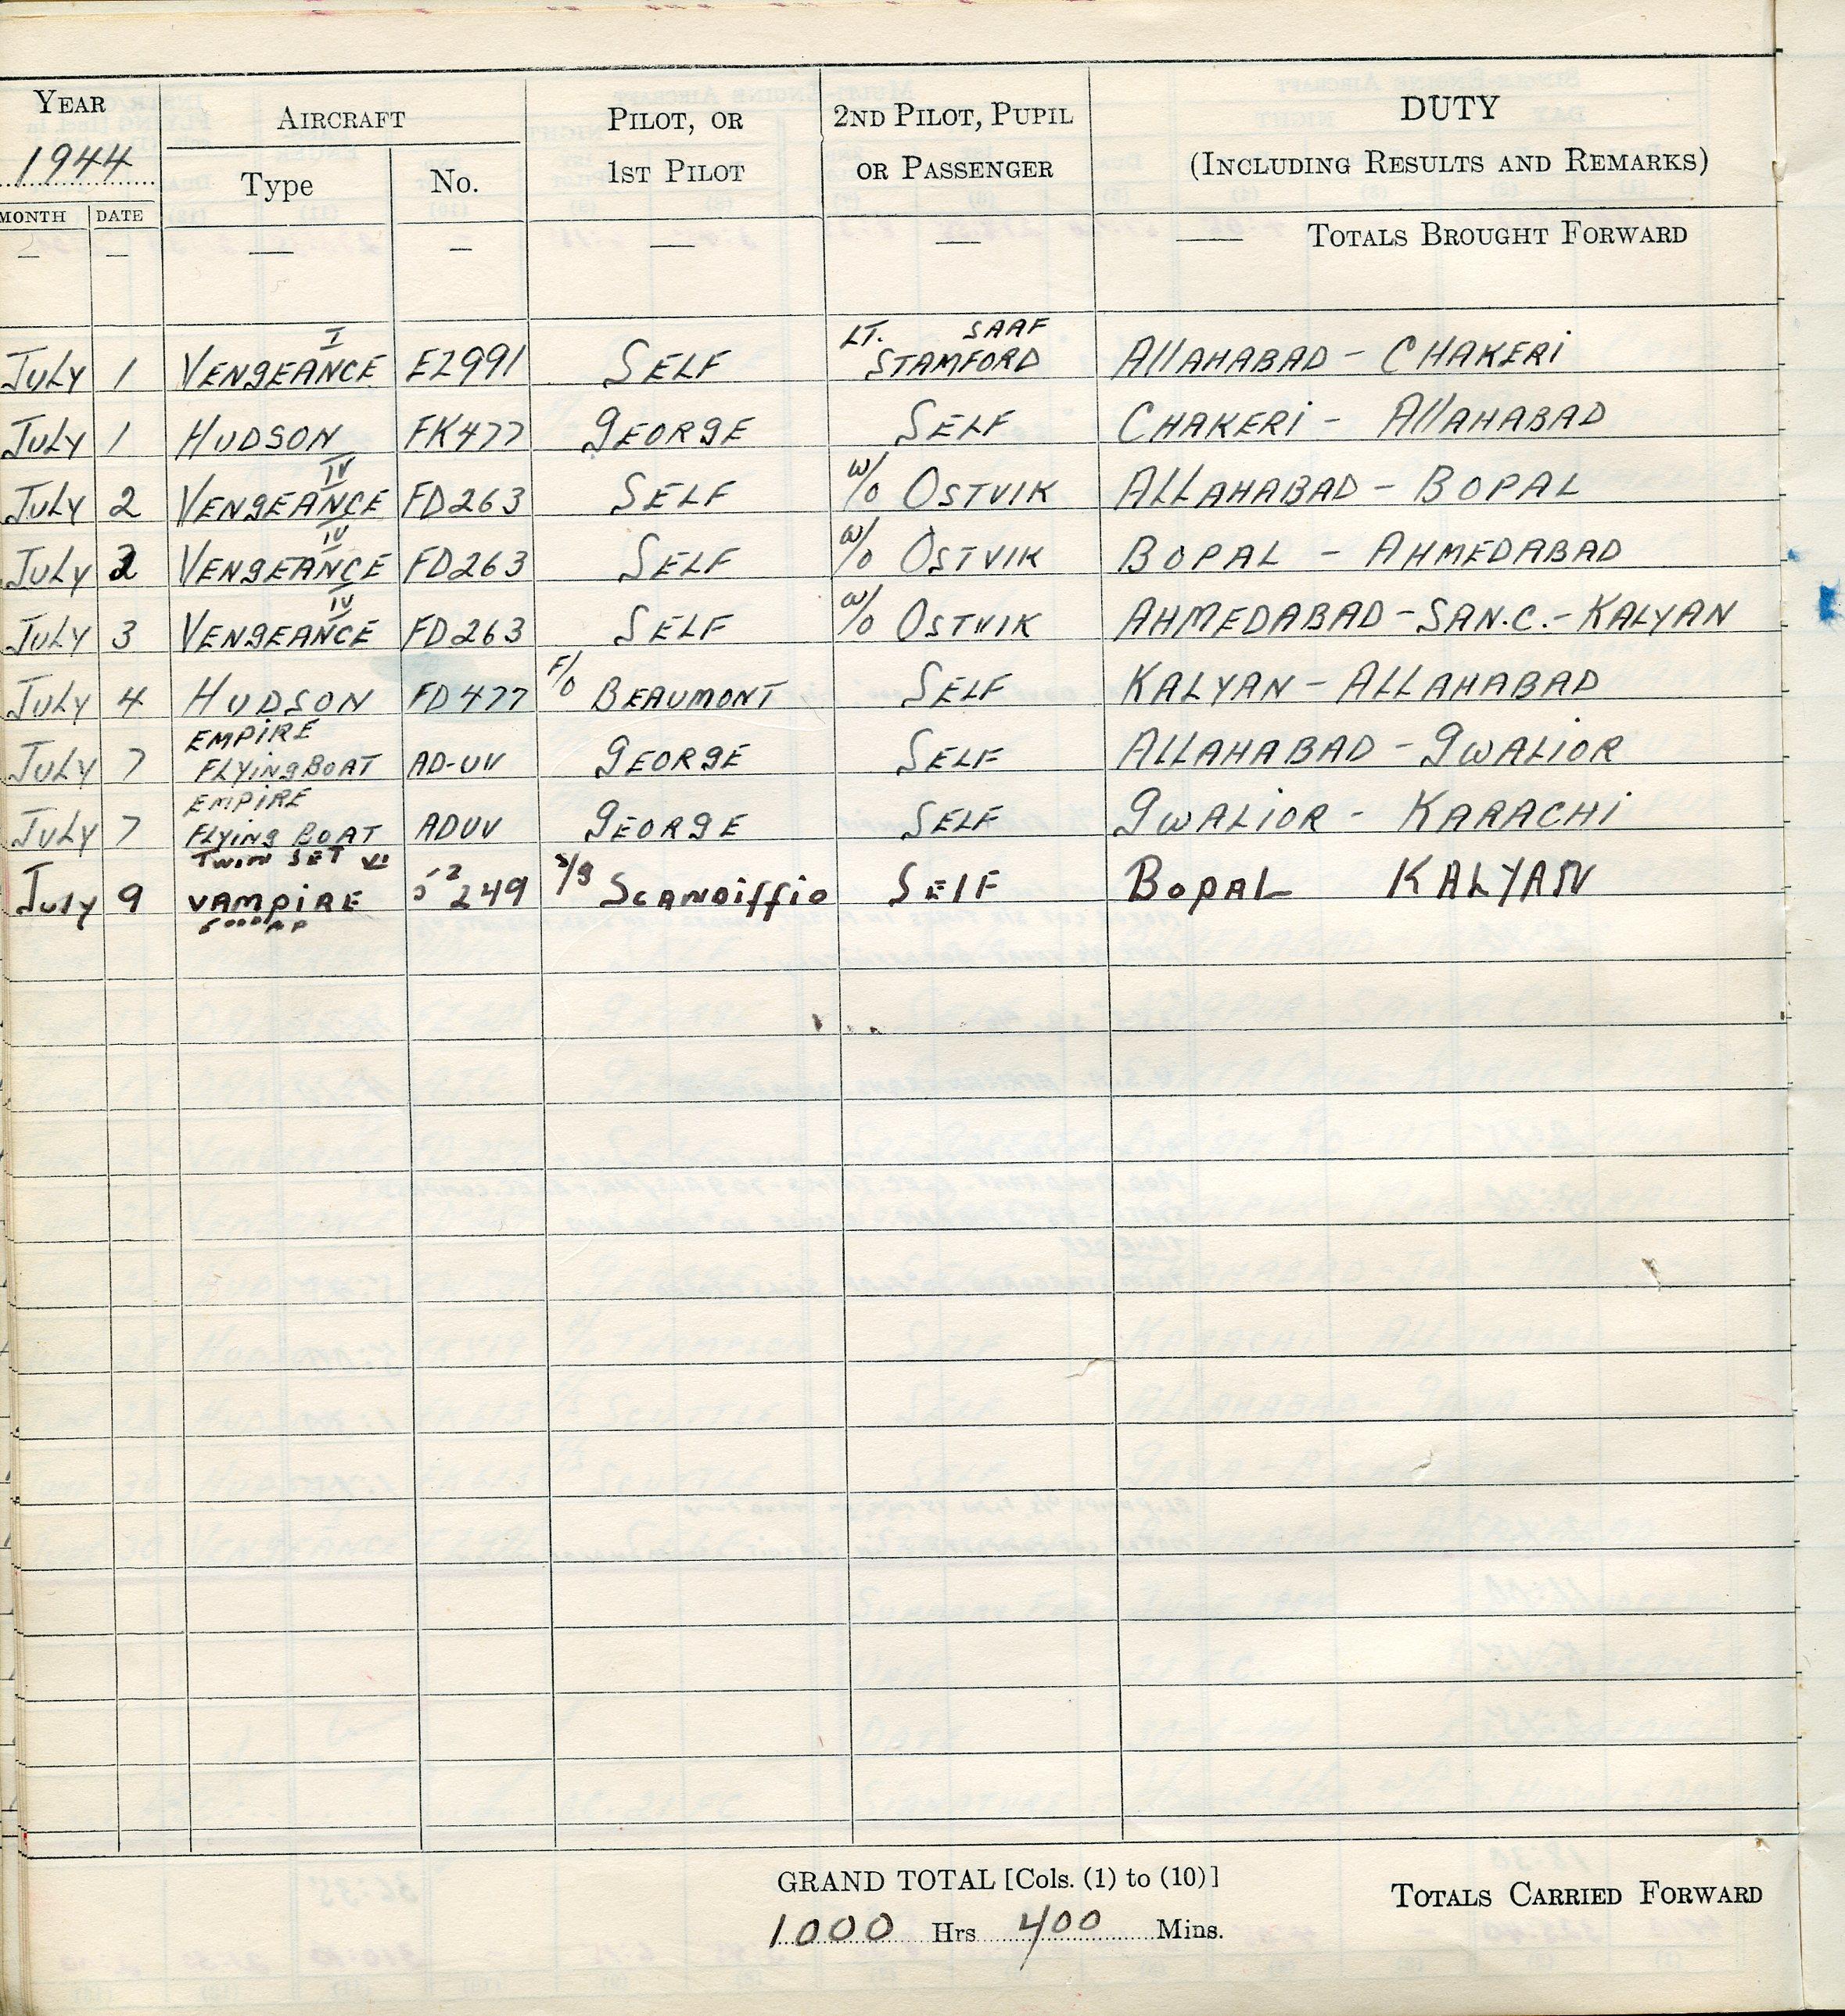 YEAR AIRCRAFT PILOT, OR 2ND PILOT, PUPIL DUTY
1944 Type No. 1ST PILOT OR PASSENGER (INCLUDING RESULTS AND REMARKS)
MONTH DATE
— — — — — — — TOTALS BROUGHT FORWARD
July 1 VENGEANCE I EZ991 SELF LT. STAMFORD SAAF ALLAHABAD - CHAKERI
July 1 HUDSON FK477 GEORGE SELF CHAKERI - ALLAHABAD
July 2 VENGEANCE IV FD263 SELF W/O OSTVIK ALLAHABAD - BOPAL
July 2 VENGEANCE IV FD263 SELF W/O OSTVIK BOPAL - AHMEDABAD
July 3 VENGEANCE IV FD263 SELF W/O OSTVIK AHMEDABAD - SAN.C. - KALYAN
July 4 HUDSON FD477 F/O BEAUMONT SELF KALYAN - ALLAHABAD
July 7 EMPIRE FLYING BOAT AD-UV GEORGE SELF ALLAHABAD - GWALIOR
July 7 EMPIRE FLYING BOAT ADUV GEORGE SELF GWALIOR - KARACHI
July 9 VAMPIRE 249 SCANDIFFIO SELF BOPAL KALYAN
GRAND TOTAL [Cols. (1) to (10)]
1000 Hrs 400 Mins.
TOTALS CARRIED FORWARD